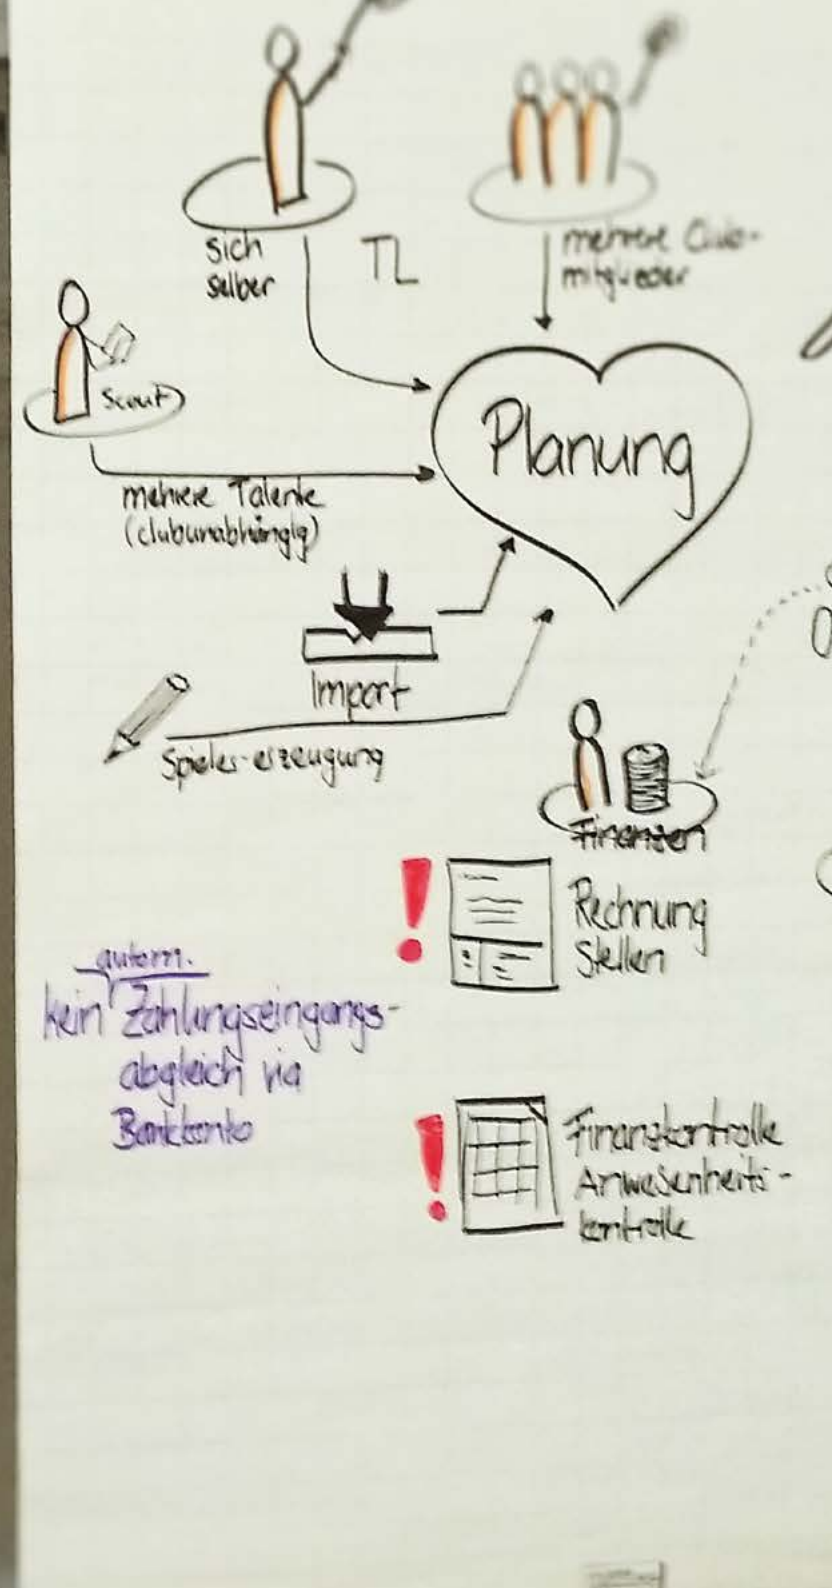 sich
selber
TL
mehrere Club-
mitglieder
Scout
Planung
mehrere Talente
(clubunabhängig)
Import
Spieler-erzeugung
Finanzen
Rechnung
Stellen
autom.
kein Zahlungseingangs-
abgleich via
Bankkonto
Finanzkontrolle
Anwesenheits-
kontrolle